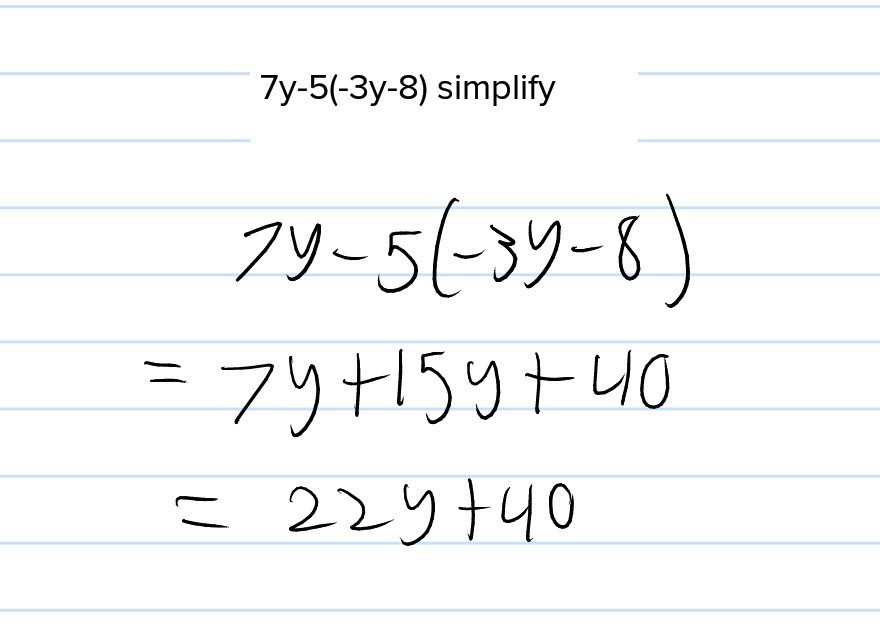 7y-5(-3y-8) simplify
7y-5(-3y-8)
= 7y+15y+40
= 22y+40